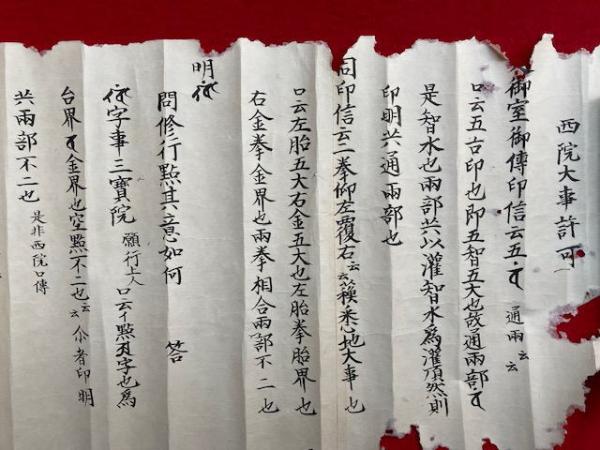 西院大事許可
御室御傳印信云五𑖀 通兩云云
口云五古印也即五智五大也故通兩部𑖀
是智水也兩部共以灌智水為灌頂然則
印明共通兩部也
同印信云二拳仰左覆右云云 悉地大事也
口云左胎五大右金五大也左胎拳胎界也
右金拳金界也兩拳相合兩部不二也
明
問修行點其意如何 答
字事三寶院 願行上人 口云イ點 字也為
台界 金界也空點不二也云云 尒者印明
共兩部不二也 是非西院口傳